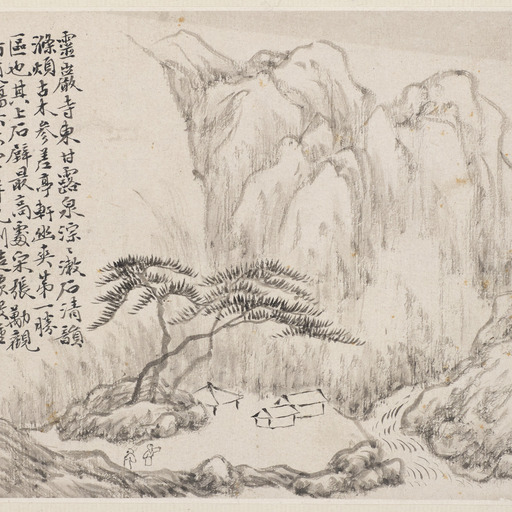 靈巖寺東甘露泉淙淙漱石清韻
滌煩古木參差亭軒幽爽第一勝
區也其上石壁最高處宋張勱觀